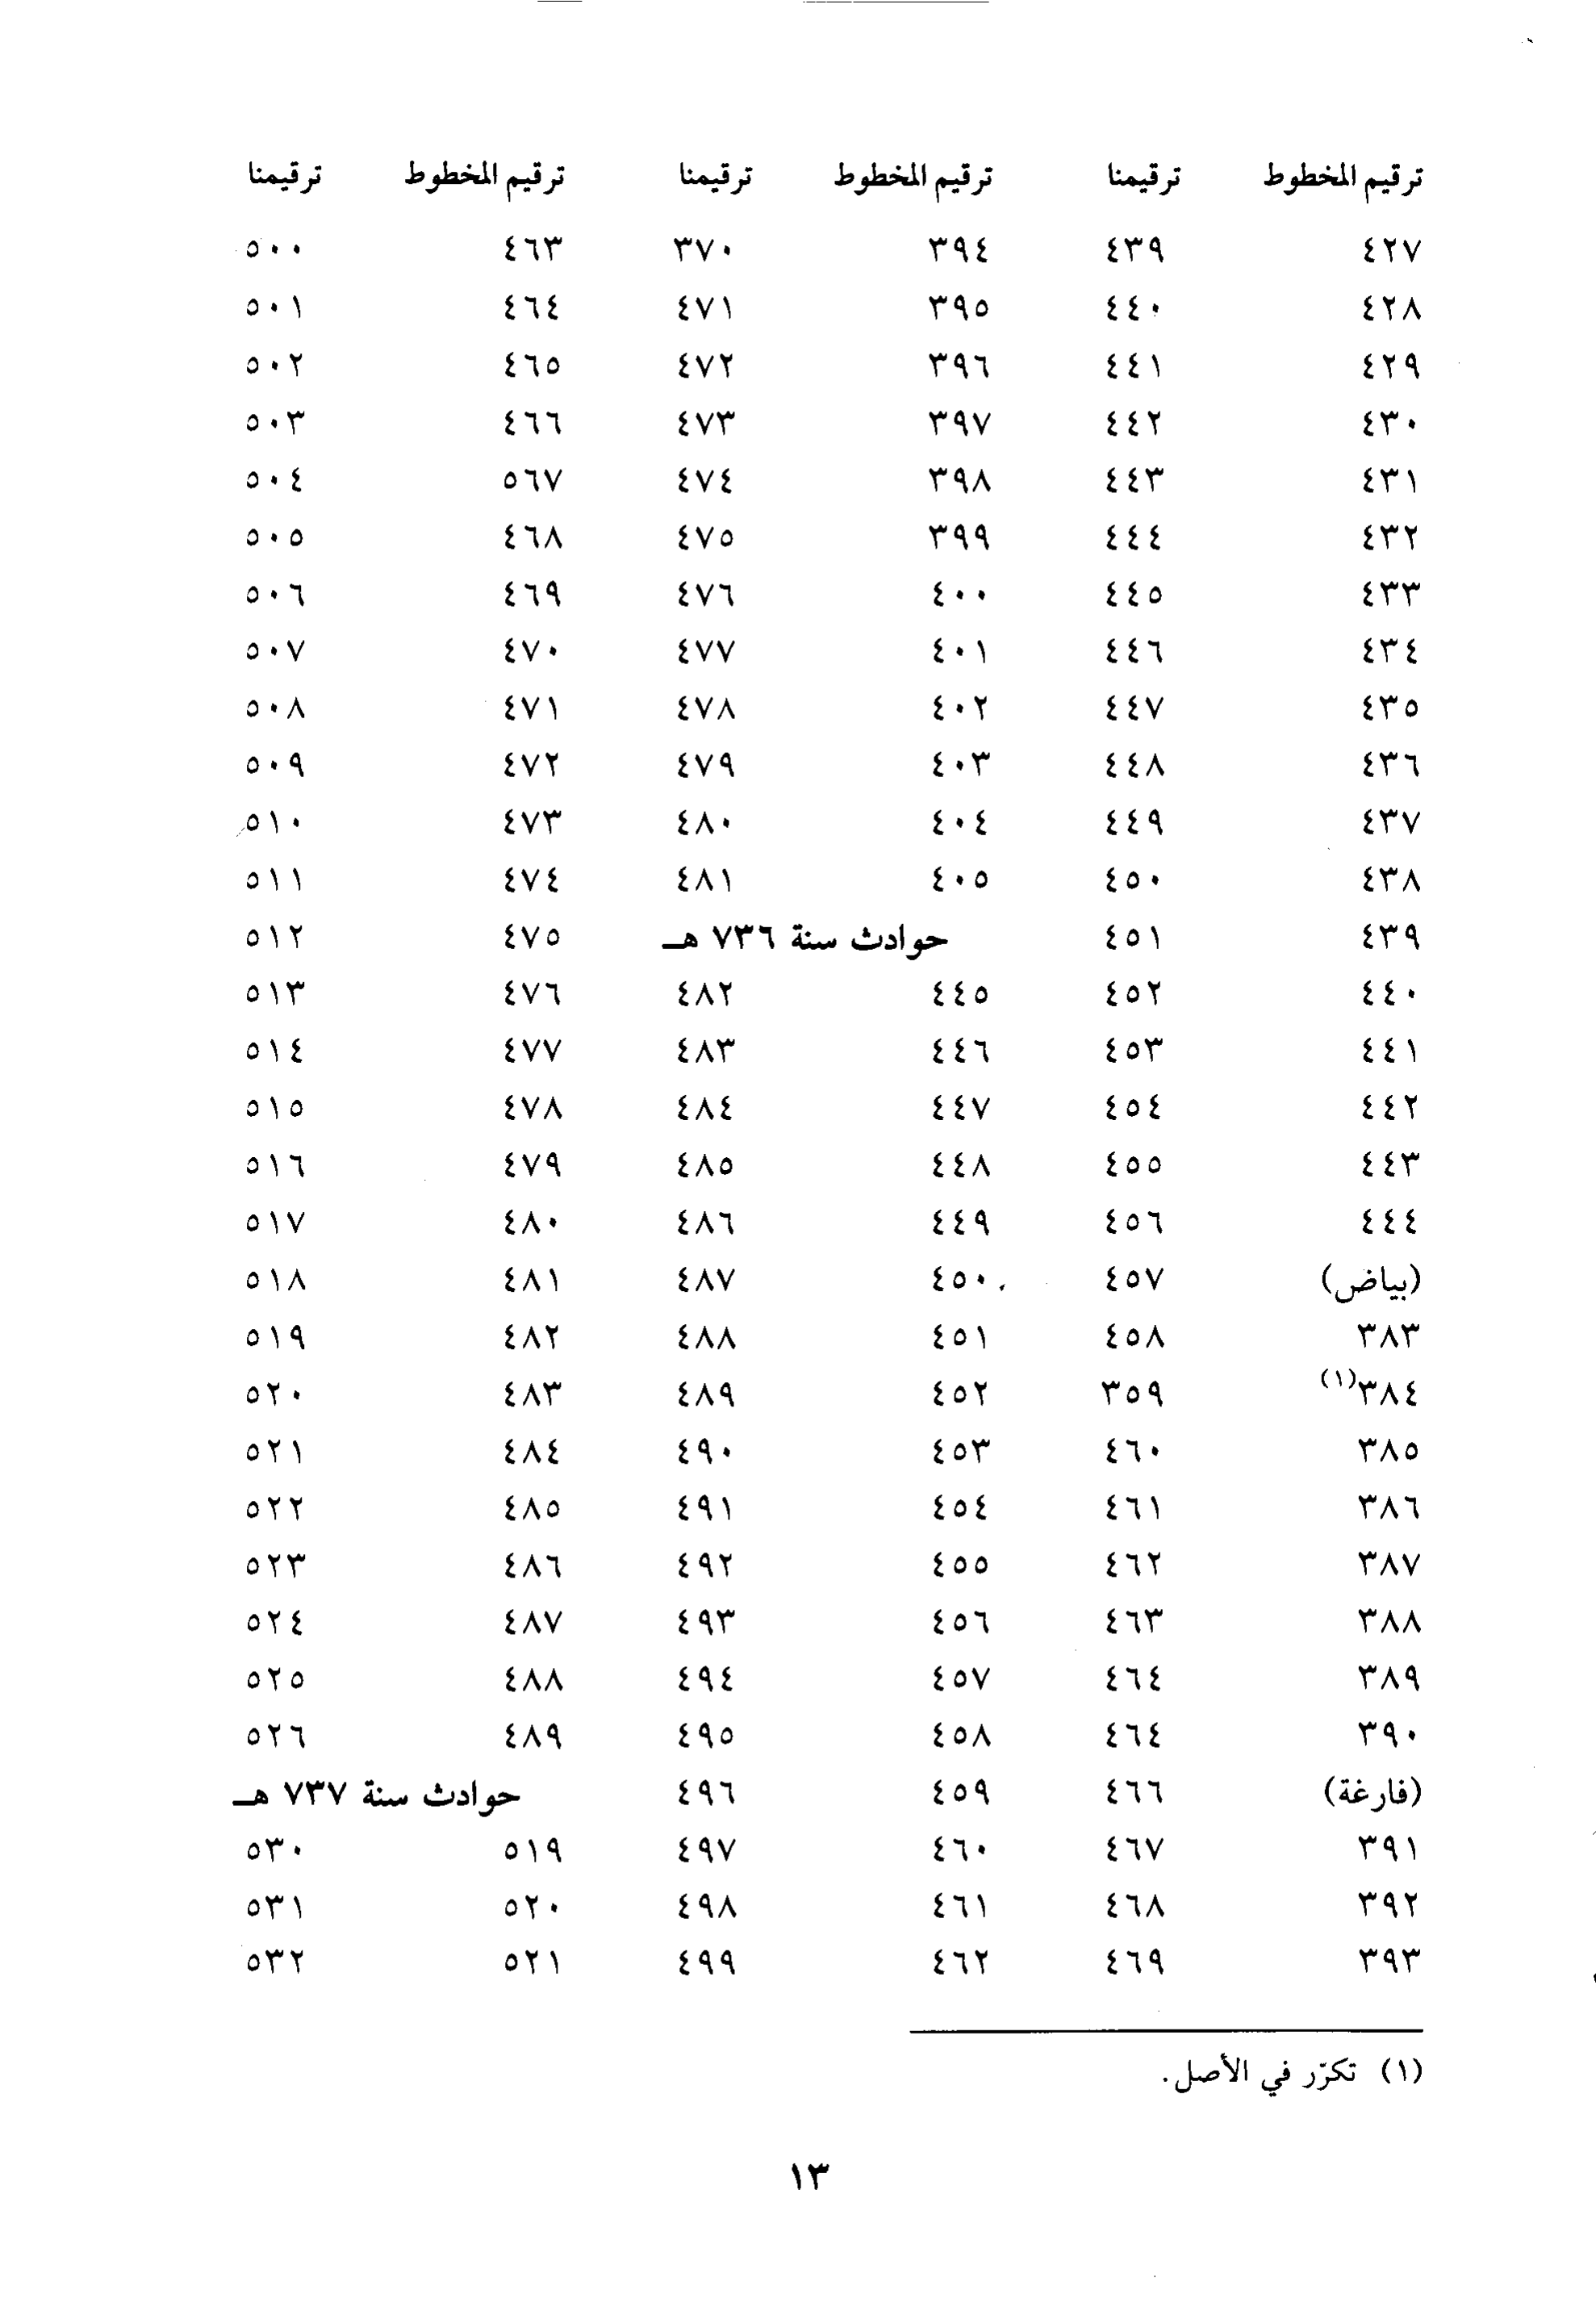 ترقيم المخطوط ترقيمنا ترقيم المخطوط ترقيمنا ترقيم المخطوط ترقيمنا
٤٢٧ ٤٣٩ ٣٩٤ ٣٧٠ ٤٦٣ ٥٠٠
٤٢٨ ٤٤٠ ٣٩٥ ٤٧١ ٤٦٤ ٥٠١
٤٢٩ ٤٤١ ٣٩٦ ٤٧٢ ٤٦٥ ٥٠٢
٤٣٠ ٤٤٢ ٣٩٧ ٤٧٣ ٤٦٦ ٥٠٣
٤٣١ ٤٤٣ ٣٩٨ ٤٧٤ ٥٦٧ ٥٠٤
٤٣٢ ٤٤٤ ٣٩٩ ٤٧٥ ٤٦٨ ٥٠٥
٤٣٣ ٤٤٥ ٤٠٠ ٤٧٦ ٤٦٩ ٥٠٦
٤٣٤ ٤٤٦ ٤٠١ ٤٧٧ ٤٧٠ ٥٠٧
٤٣٥ ٤٤٧ ٤٠٢ ٤٧٨ ٤٧١ ٥٠٨
٤٣٦ ٤٤٨ ٤٠٣ ٤٧٩ ٤٧٢ ٥٠٩
٤٣٧ ٤٤٩ ٤٠٤ ٤٨٠ ٤٧٣ ٥١٠
٤٣٨ ٤٥٠ ٤٠٥ ٤٨١ ٤٧٤ ٥١١
٤٣٩ ٤٥١ حوادث سنة ٧٣٦ هـ ٤٧٥ ٥١٢
٤٤٠ ٤٥٢ ٤٤٥ ٤٨٢ ٤٧٦ ٥١٣
٤٤١ ٤٥٣ ٤٤٦ ٤٨٣ ٤٧٧ ٥١٤
٤٤٢ ٤٥٤ ٤٤٧ ٤٨٤ ٤٧٨ ٥١٥
٤٤٣ ٤٥٥ ٤٤٨ ٤٨٥ ٤٧٩ ٥١٦
٤٤٤ ٤٥٦ ٤٤٩ ٤٨٦ ٤٨٠ ٥١٧
(بياض) ٤٥٧ ٤٥٠ ٤٨٧ ٤٨١ ٥١٨
٣٨٣ ٤٥٨ ٤٥١ ٤٨٨ ٤٨٢ ٥١٩
٣٨٤(١) ٣٥٩ ٤٥٢ ٤٨٩ ٤٨٣ ٥٢٠
٣٨٥ ٤٦٠ ٤٥٣ ٤٩٠ ٤٨٤ ٥٢١
٣٨٦ ٤٦١ ٤٥٤ ٤٩١ ٤٨٥ ٥٢٢
٣٨٧ ٤٦٢ ٤٥٥ ٤٩٢ ٤٨٦ ٥٢٣
٣٨٨ ٤٦٣ ٤٥٦ ٤٩٣ ٤٨٧ ٥٢٤
٣٨٩ ٤٦٤ ٤٥٧ ٤٩٤ ٤٨٨ ٥٢٥
٣٩٠ ٤٦٤ ٤٥٨ ٤٩٥ ٤٨٩ ٥٢٦
(فارغة) ٤٦٦ ٤٥٩ ٤٩٦ حوادث سنة ٧٣٧ هـ
٣٩١ ٤٦٧ ٤٦٠ ٤٩٧ ٥١٩ ٥٣٠
٣٩٢ ٤٦٨ ٤٦١ ٤٩٨ ٥٢٠ ٥٣١
٣٩٣ ٤٦٩ ٤٦٢ ٤٩٩ ٥٢١ ٥٣٢
(١) تكرّر في الأصل.
١٣